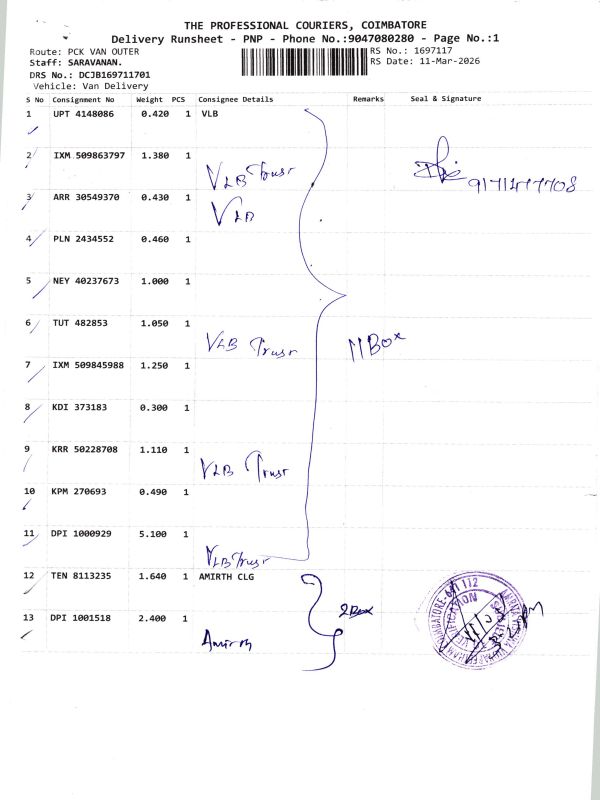 THE PROFESSIONAL COURIERS, COIMBATORE
Delivery Runsheet - PNP - Phone No.:9047080280 - Page No.:1
Route: PCK VAN OUTER
RS No.: 1697117
Staff: SARAVANAN.
RS Date: 11-Mar-2026
DRS No.: DCJB169711701
Vehicle: Van Delivery
S No Consignment No Weight PCS Consignee Details Remarks Seal & Signature
1 UPT 4148086 0.420 1 VLB
2 IXM 509863797 1.380 1
VLB Trust
3 ARR 30549370 0.430 1
VLB
4 PLN 2434552 0.460 1
5 NEY 40237673 1.000 1
6 TUT 482853 1.050 1
VLB Trust
11 Box
7 IXM 509845988 1.250 1
8 KDI 373183 0.300 1
9 KRR 50228708 1.110 1
VLB Trust
10 KPM 270693 0.490 1
11 DPI 1000929 5.100 1
VLB Trust
12 TEN 8113235 1.640 1 AMIRTH CLG
2 Box
13 DPI 1001518 2.400 1
Amirth